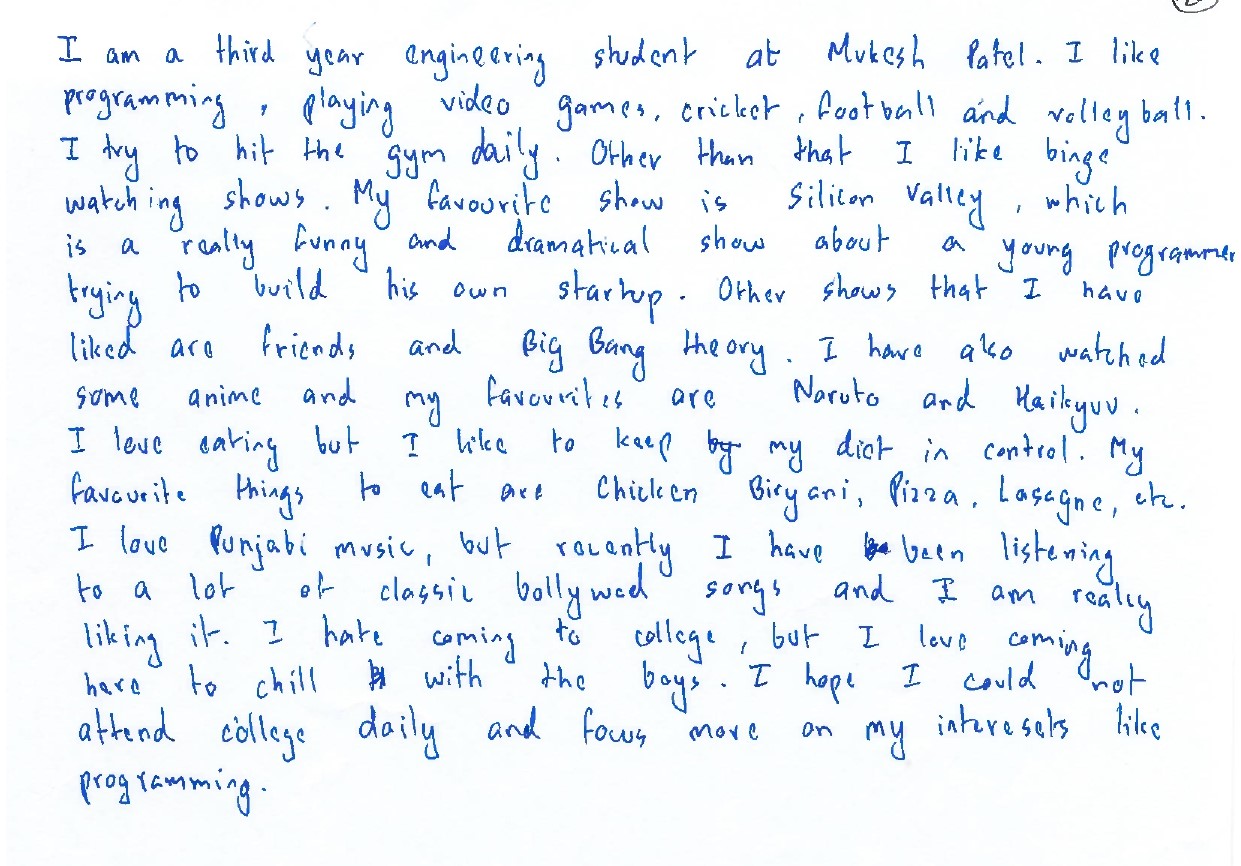 I am a third year engineering student at Mukesh Patel. I like
programming, playing video games, cricket, football and volleyball.
I try to hit the gym daily. Other than that I like binge
watching shows. My favourite show is Silicon Valley, which
is a really funny and dramatical show about a young programmer
trying to build his own startup. Other shows that I have
liked are friends and Big Bang theory. I have also watched
some anime and my favourites are Naruto and Haikyuu.
I love eating but I like to keep my diet in control. My
favourite things to eat are Chicken Biryani, Pizza, Lasagne, etc.
I love Punjabi music, but recently I have been listening
to a lot of classic bollywod songs and I am really
liking it. I hate coming to college, but I love coming
here to chill with the boys. I hope I could not
attend college daily and focus more on my interesets like
programming.